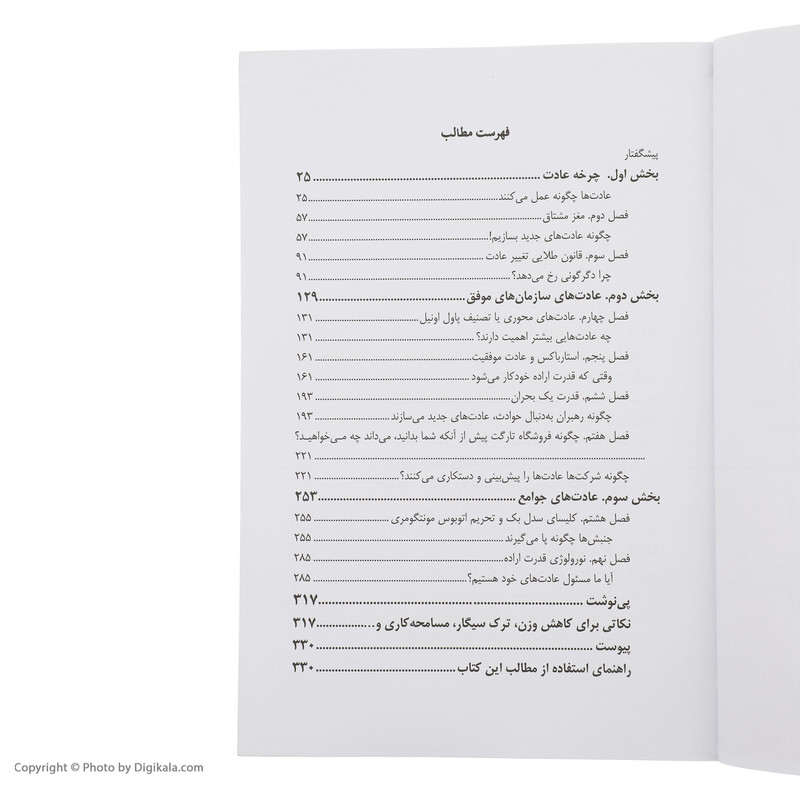 فهرست مطالب
پیشگفتار
بخش اول. چرخه عادت ........ ۲۵
عادت‌ها چگونه عمل می‌کنند ........ ۲۵
فصل دوم. مغز مشتاق ........ ۵۷
چگونه عادت‌های جدید بسازیم! ........ ۵۷
فصل سوم. قانون طلایی تغییر عادت ........ ۹۱
چرا دگرگونی رخ می‌دهد؟ ........ ۹۱
بخش دوم. عادت‌های سازمان‌های موفق ........ ۱۲۹
فصل چهارم. عادت‌های محوری یا تصنیف پاول اونیل ........ ۱۳۱
چه عادت‌هایی بیشتر اهمیت دارند؟ ........ ۱۳۱
فصل پنجم. استارباکس و عادت موفقیت ........ ۱۶۱
وقتی که قدرت اراده خودکار می‌شود ........ ۱۶۱
فصل ششم. قدرت یک بحران ........ ۱۹۳
چگونه رهبران به‌دنبال حوادث، عادت‌های جدید می‌سازند ........ ۱۹۳
فصل هفتم. چگونه فروشگاه تارگت پیش از آنکه شما بدانید، می‌داند چه مـی‌خواهیـد؟
........ ۲۲۱
چگونه شرکت‌ها عادت‌ها را پیش‌بینی و دستکاری می‌کنند؟ ........ ۲۲۱
بخش سوم. عادت‌های جوامع ........ ۲۵۳
فصل هشتم. کلیسای سدل بک و تحریم اتوبوس مونتگومری ........ ۲۵۵
جنبش‌ها چگونه پا می‌گیرند ........ ۲۵۵
فصل نهم. نورولوژی قدرت اراده ........ ۲۸۵
آیا ما مسئول عادت‌های خود هستیم؟ ........ ۲۸۵
پی‌نوشت ........ ۳۱۷
نکاتی برای کاهش وزن، ترک سیگار، مسامحه‌کاری و ........ ۳۱۷
پیوست ........ ۳۳۰
راهنمای استفاده از مطالب این کتاب ........ ۳۳۰
Copyright © Photo by Digikala.com